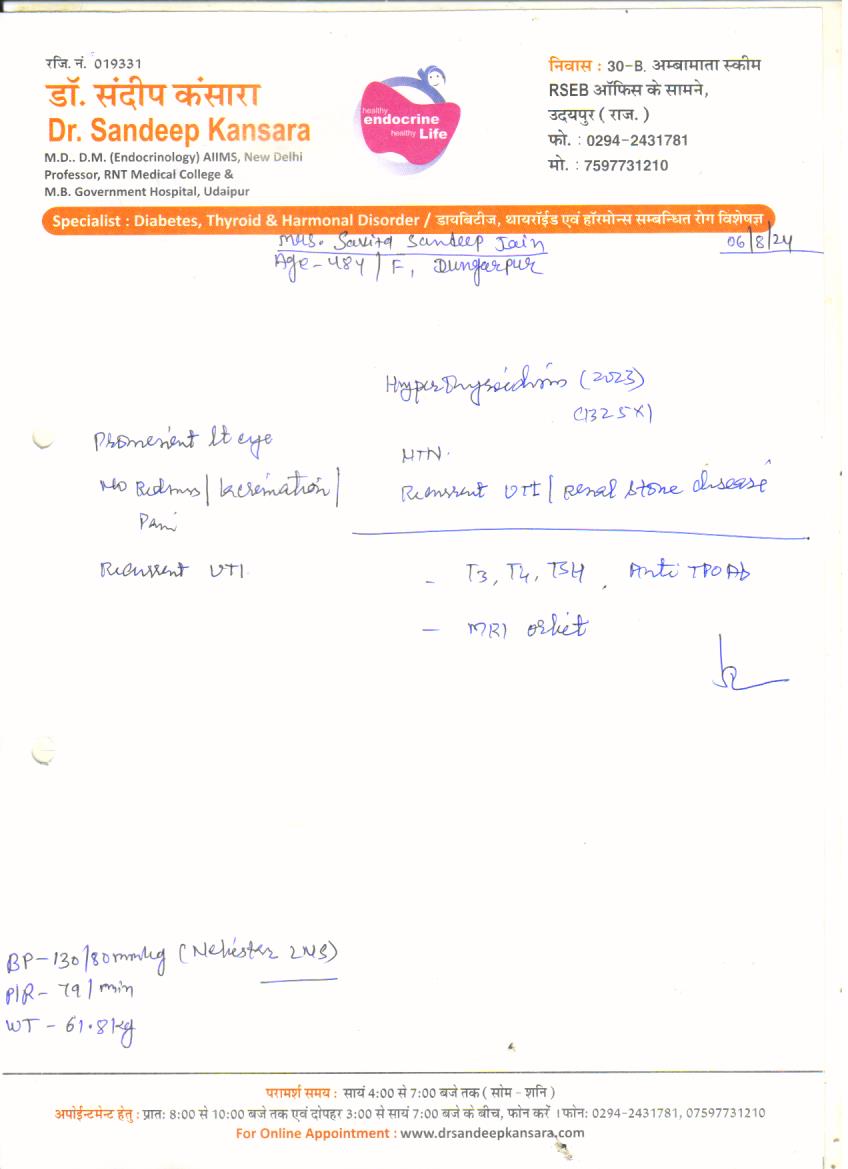 रजि. नं. 019331
डॉ. संदीप कंसारा
Dr. Sandeep Kansara
M.D.. D.M. (Endocrinology) AIIMS, New Delhi
Professor, RNT Medical College &
M.B. Government Hospital, Udaipur
healthy
endocrine
healthy Life
निवास : 30-B. अम्बामाता स्कीम
RSEB ऑफिस के सामने,
उदयपुर ( राज. )
फो. : 0294-2431781
मो. : 7597731210
Specialist : Diabetes, Thyroid & Harmonal Disorder / डायबिटीज, थायरॉईड एवं हॉरमोन्स सम्बन्धित रोग विशेषज्ञ
Mrs. Savita Sandeep Jain
06/8/24
Age - 48y / F, Dungarpur
Hyperthyroidism (2023)
Prominent lt eye
HTN.
No Redness / lacrimation /
Pain
Recurrent UTI / renal stone disease
Recurrent UTI
- T3, T4, TSH, Anti TPO Ab
- MRI orbit
BP - 130/80mmHg
P/R - 79 / min
WT - 61.8 kg
परामर्श समय : सायं 4:00 से 7:00 बजे तक ( सोम - शनि )
अपोईन्टमेन्ट हेतु : प्रातः 8:00 से 10:00 बजे तक एवं दोपहर 3:00 से सायं 7:00 बजे के बीच, फोन करें । फोन: 0294-2431781, 07597731210
For Online Appointment : www.drsandeepkansara.com